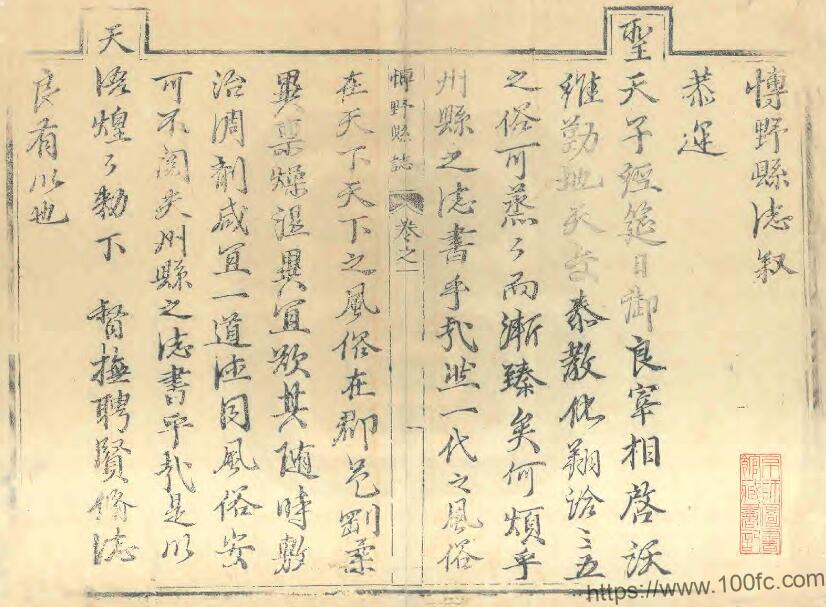 博野縣志叙
恭運
聖天子經筵日御良宰相啓沃
維勤地天交泰教化翔洽三五
之俗可蒸々而漸臻矣何煩乎
州縣之志書乎哉然一代之風俗
博野縣誌 卷之一
在天下天下之風俗在郡邑剛柔
異稟燥濕異宜欲其随時敷
治調劑咸宜一道德同風俗安
可不閱夫州縣之志書乎哉是以
天
語煌々勅下 督撫聘賢脩志
良有以也
京師圖書
館藏書記
https://www.100fc.com